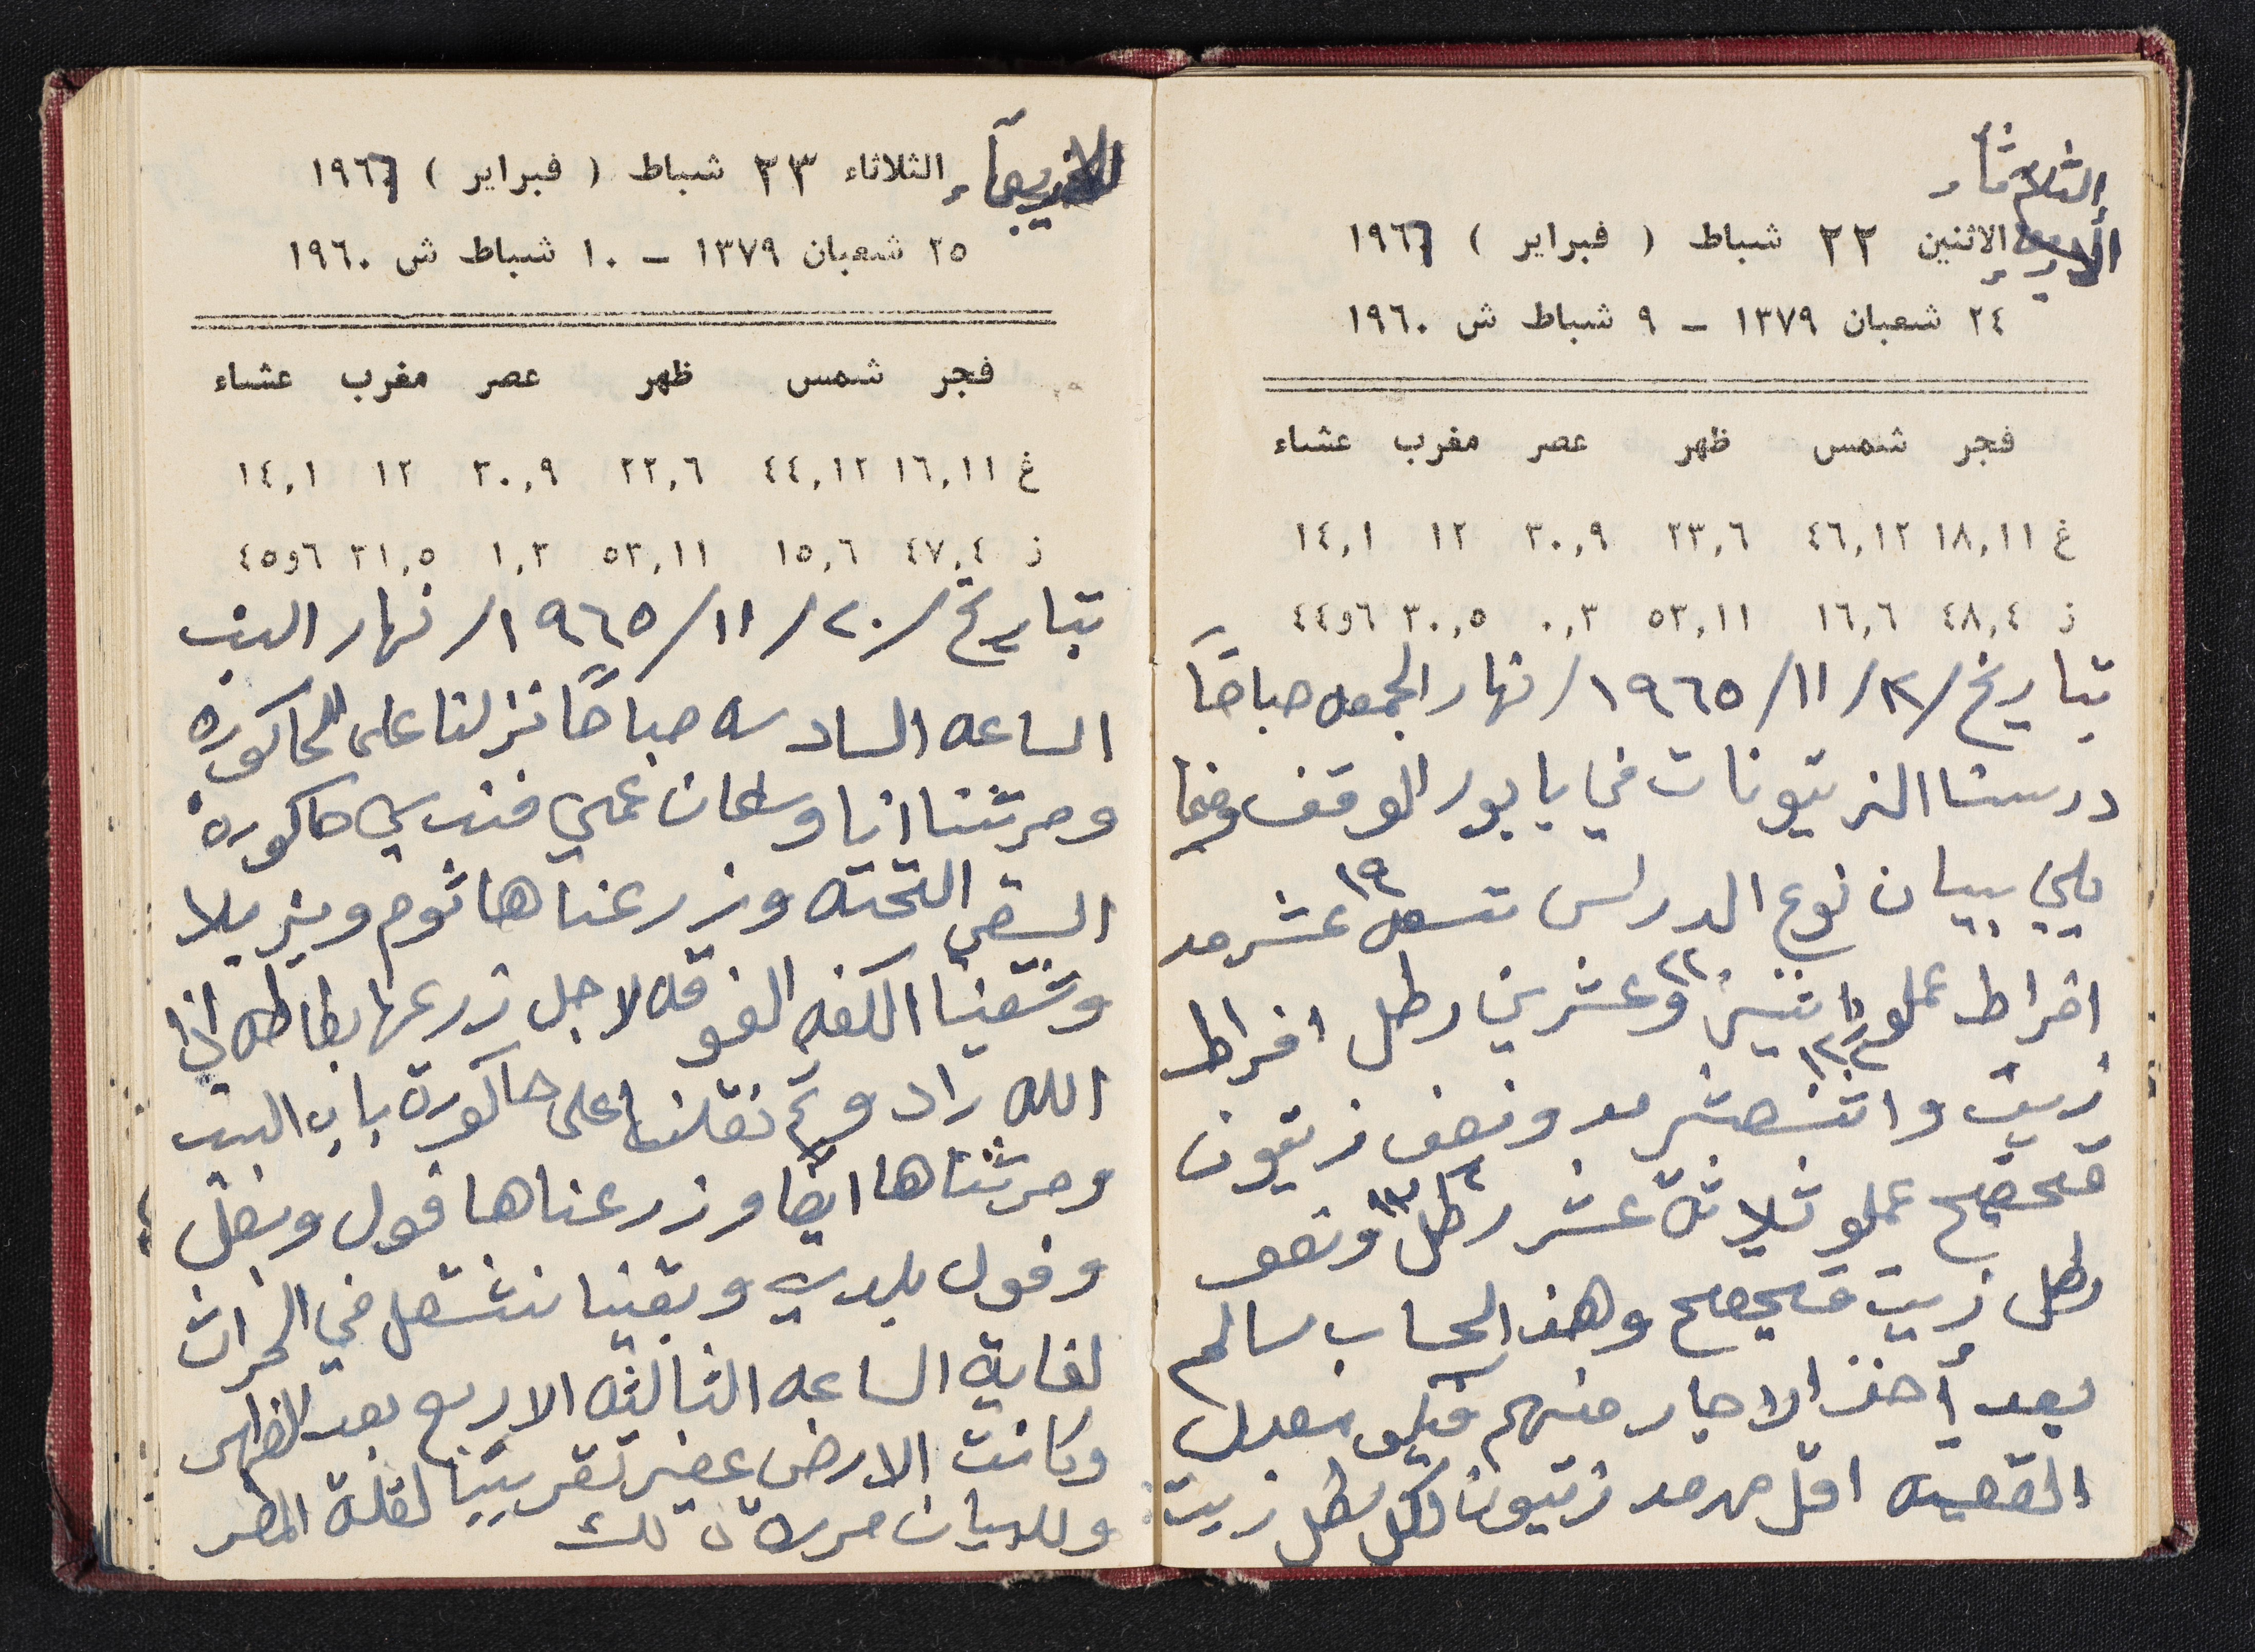 الثلاثاء
الاثنين ٢٢ شباط ( فبراير ) ١٩٦٦
٢٤ شعبان ١٣٧٩ – ٩ شباط ش ١٩٦٠
فجر شمس ظهر عصر مغرب عشاء
غ ١٨,١١ ٤٦,١٢ ٢٣,٦ ٣٠,٩ ١٢ ١٤,١
ز ٤٨,٤ ١٦,٦ ٥٣,١١ ٠,٣ ٣٠,٥ ٦و٤٤
بتاريخ / /١١/١٩٦٥/ نهار الجمعه صباحاً
درسنا الزيتونات في بابور الوقف وفيما
يلي بيان نوع الدرس تسعه ١٩ عشر مد
افراط عملو اثنين ٢٢ وعشرين رطل افراط
زيت واثنعشر مد ونصف زيتون
قحقيح عملو ثلاثة عشر رطل ١٣ ونصف
رطل زيت قحيقح وهذ الحساب سالم
بعد أخذ الاجار منهم فيكون معدل
القضيه اقل من مد زيتون لكل رطل زيت
الاربعاء الثلاثاء ٢٣ شباط ( فبراير ) ١٩٦٦
٢٥ شعبان ١٣٧٩ – ١٠ شباط ش ١٩٦٠
فجر شمس ظهر عصر مغرب عشاء
غ ١٦,١١ ٤٤,١٢ ٢٢,٦ ٣٠,٩ ١٢ ١٤,١
ز ٤٧,٤ ١٥,٦ ٥٣,١١ ١,٣ ٣١,٥ ٦و٤٥
بتاريخ /٢٠/١١/١٩٦٥/ نهار السبت
الساعه السادسه صباحاً نزلنا على الحاكوره
وحرثنا انا وسلمان عمي فندي حاكورة
السقي التحته وزرعناها ثوم وبزيلا
وشقينا الكفه الفوقه لاجل زرعها بطاطه اذا
الله راد وتم نقلنا على حاكورة باب البيت
وحرثناها ايضا وزرعناها فول وبصل
وفول بلدي وبقينا نشتغل في الحراث
لغاية الساعه الثالثه الا ربع بعد الظهر
وكانت الارض عفير تقريبًا لقلة المطر
وللبيان حرر ذلك